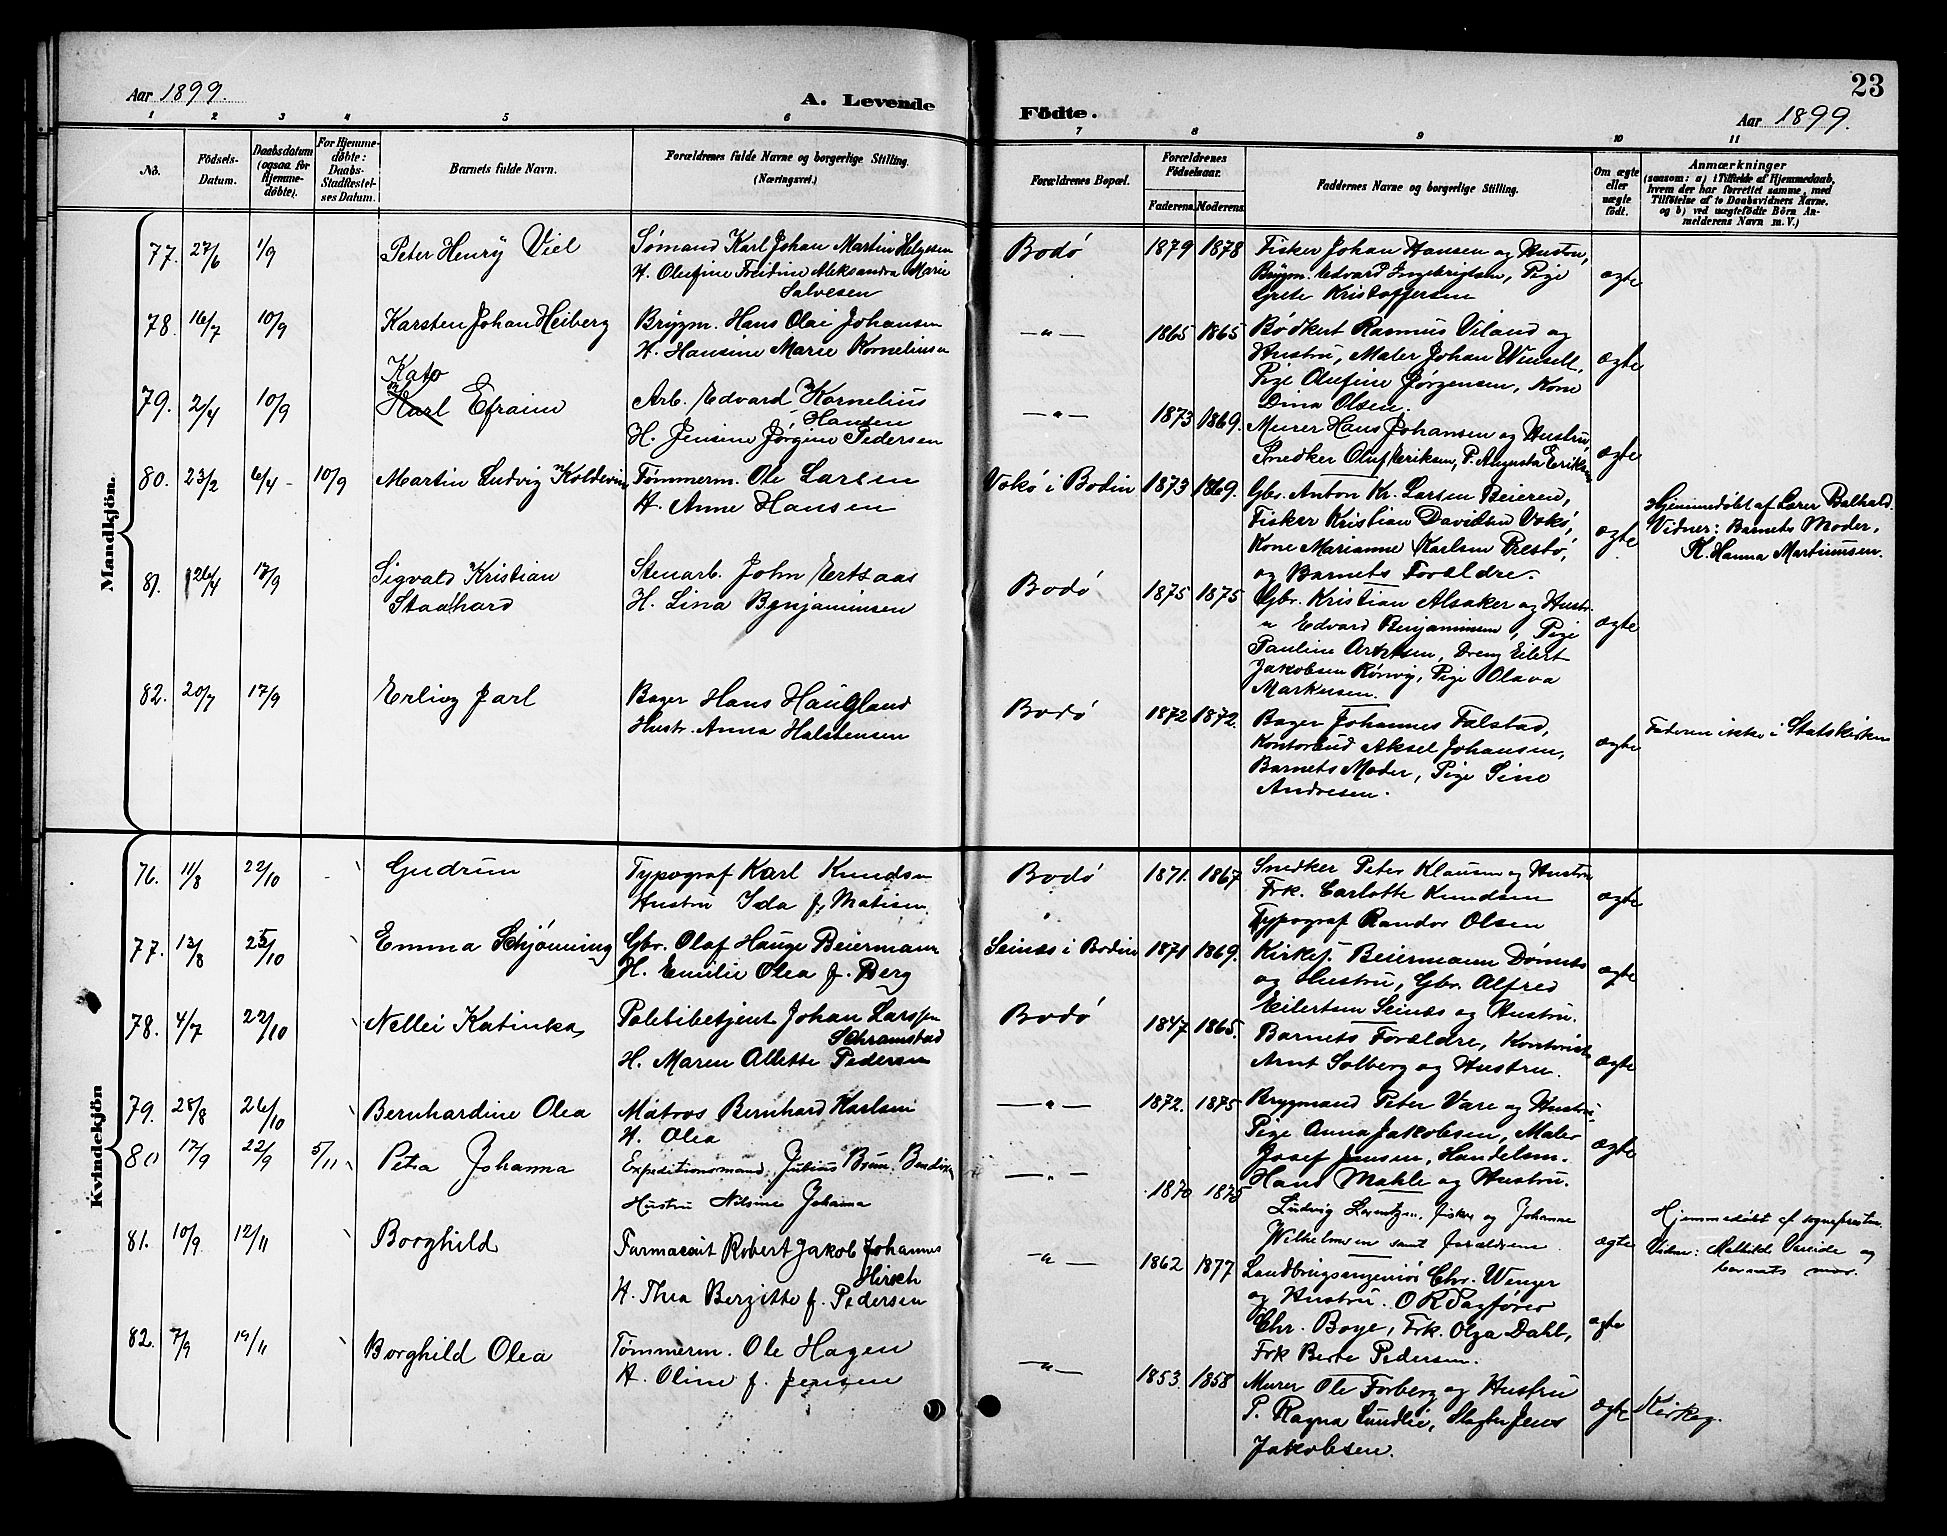 23
Aar 1899.
A. Levende
Födte.
Aar 1899.
1 2 3 4 5 6 7 8 9 10 11
No.
Födsels-Datum.
Daabsdatum (ogsaa for Hjemmedöbte).
For Hjemmedöbte: Daabs-Stadfæstelses Datum.
Barnets fulde Navn.
Forældrenes fulde Navne og borgerlige Stilling. (Næringsvei.)
Forældrenes Bopæl.
Forældrenes Födselsaar.
Faderens. Moderens.
Faddernes Navne og borgerlige Stilling.
Om ægte eller uægte födt.
Anmærkninger (saasom: a) i Tilfælde af Hjemmedaab, hvem der har forrettet samme, med Tilföielse af to Daabsvidners Navne, og b) ved uægtefödte Börn Anmelderens Navn m. V.)
Mandkjön.
77. 27/6 1/9 Peter Henry Viel
Sømand Karl Johan Martin Helgesen
H. Olufine Fredine Aleksandra Marie
Salvesen
Bodø 1879 1878
Fisker Johan Hansen og Hustru,
Brygm. Edvard Ingebrigtsen, Pige
Grete Kristoffersen
ægte
78. 16/7 10/9 Karsten Johan Heiberg
Brygm. Hans Olai Johansen
H. Hansine Marie Kornelius
—"— 1865 1865
Bødker Rasmus Viland og
Hustru, Maler Johan
Pige Olufine Jørgensen, Kone
Dina Olsen.
ægte
79. 2/4 10/9 Kato
Karl Efraim
Arb. Edvard Kornelius
Hansen
H. Jensine Jørgine Pedersen
—"— 1873 1869.
Murer Hans Johansen og Hustru
Snedker Oluf Eriksen, P. Augusta Eriksen
ægte
80. 23/2 6/4 - 10/9 Martin Ludvig Koldevin
Tømmerm. Ole Larsen
H. Anne Hansen
Vokø i Bodin 1873 1869.
Gbr. Anton Kr. Larsen Beieren,
Fisker Kristian Davidsen Vokø,
Kone Marianne Karlsen Restø,
og Barnets Forældre.
ægte
Hjemmedøbt af Lærer Balhald.
Vidner: Barnets Moder,
K. Hanna Martinusen.
81. 26/4 17/9 Sigvald Kristian
Staalhard
Stenarb. John Ertsaas
H. Lina Benjaminsen
Bodø 1875 1875
Gbr. Kristian Alsaker og Hustr.
" Edvard Benjaminsen, Pige
Pauline Arntsen, Dreng Eilert
Jakobsen Rønvig, Pige Olava
Markusen.
ægte
82. 20/7 17/9 Erling Jarl
Bager Hans Haugland
Hustr. Anna Halstensen
Bodø 1872 1872.
Bager Johannes Falstad,
Kontorbud Aksel Johansen,
Barnets Moder, Pige Sine
Andresen.
ægte
Faderen ikke i Statskirken
Kvindekjön
76. 11/8 22/10 Gudrun
Typograf Karl Knudsen
Hustru Ida f. Matisen
Bodø 1871. 1867
Snedker Peter Klausen og Hustru
Frk. Carlotte Knudsen
Typograf Randor Olsen
ægte
77. 13/8 25/10 Emma Schjønning
Gbr. Olaf Hauge Beiermann
H. Emilie Olea f. Berg
Seinæs i Bodin 1871 1869.
Kirkesj. Beiermann Dønnes
og Hustru, Gbr. Alfred
Eilertsen Seinæs og Hustru.
ægte
78. 4/7 22/10 Nellei Katinka
Politibetjent Johan Larssen
Schramstad
H. Maren Allette Pedersen
Bodø 1847 1865.
Barnets Forældre, Kontorist
Arnt Solberg og Hustru.
ægte
79. 28/8 26/10 Bernhardine Olea
Matros Bernhard Karlsen
H. Olea
—"— 1872. 1875
Brygmand Peter Vare og Hustru
Pige Anna Jakobsen, Maler
Josef Jensen, Handelsm.
Hans Mahle og Hustru.
ægte
80 17/9 22/9 5/11 Petra Johanna
Expeditionsmand Julius Brun Bendixen
Hustru Nilsine Johanna
—"— 1870 1875
Ludvig Lorentzen, fisker og Johanne
Wilhelmsen samt forældrene.
ægte
Hjemmedøbt af sogneprestem.
Vidner: Mathilde og
barnets mor.
81. 10/9 12/11 Borghild
Farmaceut Robert Jakob Johannes
Hirsch
H. Thea Bergitte f. Pedersen
—"— 1862 1877
Landbrugsingeniør Chr. Wenger
og Hustru. O R Sagfører
Chr. Boye, Frk. Olga Dahl,
Frk Berte Pedersen.
ægte
82. 7/9 19/11 Borghild Olea
Tømmerm. Ole Hagen
H. Oline f. Jensen
—"— 1853. 1858
Murer Ole Forberg og Hustru
P. Ragna Lundli, Slagter Jens
Jakobsen.
ægte
Kirkeg.